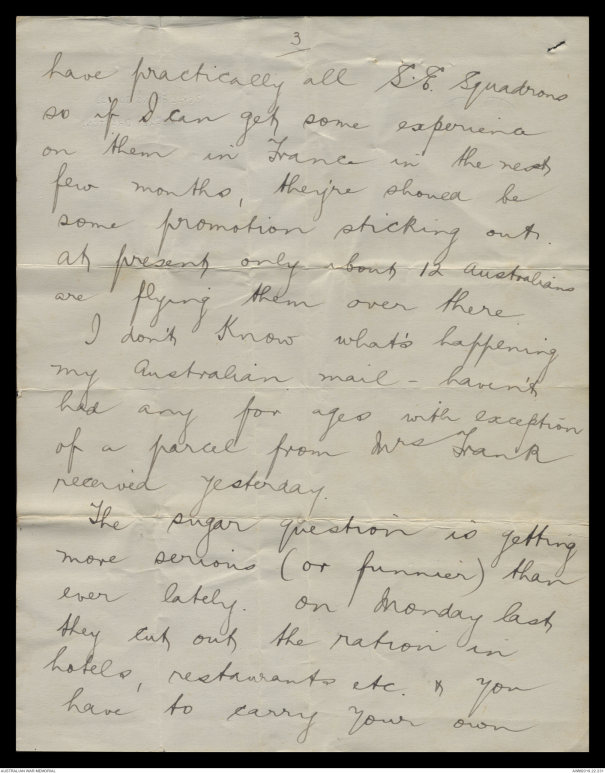 3
have practically all S.E. Squadrons
so if I can get some experience
on them in France in the next
few months, they're should be
some promotion sticking out.
At present only about 12 Australians
are flying them over there.
I don't know what's happening
my Australian mail - haven't
had any for ages with exception
of a parcel from Mrs Frank
received yesterday.
The sugar question is getting
more serious (or funnier) than
ever lately. On Monday last
they cut out the ration in
hotels, restaurants etc. & you
have to carry your own
AUSTRALIAN WAR MEMORIAL